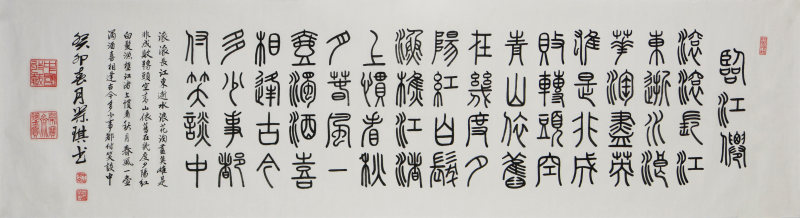 臨江僊
滚滚長江
東逝水浪
華淘盡英
雄是非成
敗轉頭空
青山依舊
在幾度夕
陽紅白髮
漁樵江渚
上慣看秋
月春風一
壺濁酒喜
相逢古今
多少事都
付笑談中
滚滚長江東逝水浪花淘盡英雄是
非成敗轉頭空青山依舊在幾度夕陽紅
白髮漁樵江渚上慣看秋月春風一壺
濁酒喜相逢古今多少事都付笑談中
癸卯春月琪书